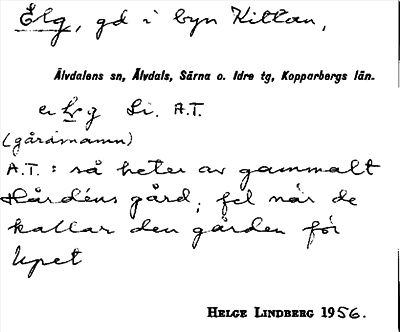 Elg, gd i byn Kittan,
Älvdalens sn, Älvdals, Särna o. Idre tg, Kopparbergs län.
Li. A.T.
(gårdsnamn)
A.T. : så heter av gammalt
Hårdéns gård; fel när de
kallar den gården för
Upet
HELGE LINDBERG 1956.